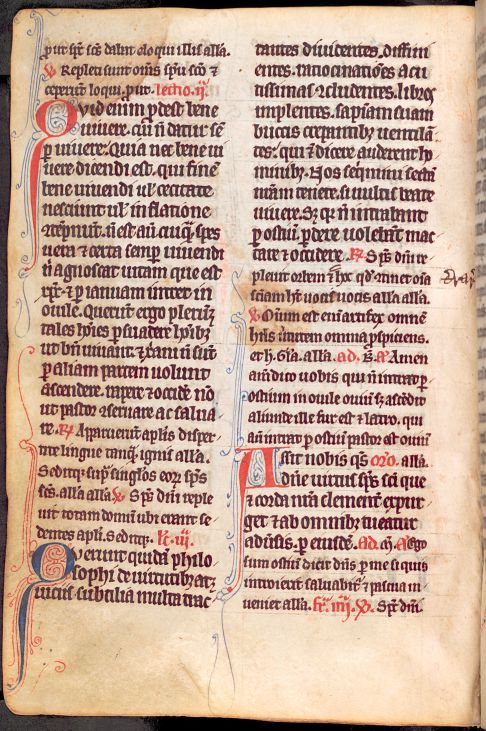 prout sps scs dabat eloqui illis alla.
V Repleti sunt oms spu sco &
ceperunt loqui. prout. lectio. ii.
Quid enim pdest bene
uiuere. cui n datur sem
p uiuere. Quia nec bene ui
uere dicendi est. qui finem
bene uiuendi ul cecitate
nesciunt ul inflatione
contempnunt. n est aut cuiq spes
uera & certa semp uiuendi
n agnoscat uitam que est
xpc. & p ianuam intret in
ouile. Querunt ergo pleriq
tales hoies psuadere hoibz
ut bn uiuant & xpiani n sint
p aliam partem uolunt
ascendere. rapere & occidere no
ut pastor conseruare ac salua
re. R Apparuerunt aplis disper
tite lingue tanq ignis alla.
Seditq sup singlos eorum sps
scs. alla alla V Sps dni reple
uit totam domum ubi erant se
dentes apli. Seditq. lc. iii.
Fuerunt quidam philo
sophi de uirtutibz atqz
uiciis subtilia multa trac
tantes diuidentes. diffini
entes. ratiocinationes acu
tissimas concludentes. libros
implentes. sapiam suam
buccis crepantibz uentilan
tes. qui & dicere auderent ho
minibz. Nos sequimini sectam
nram tenete. si multis beate
uiuere. Sz qz n intrabant
p ostium. pdere uolebant mac
tare & occidere. R Sps dni re
pleuit orbem & hoc qd continet oia
sciam habet uocis alla alla.
V Omium est eni artifex omnem
hns uirtutem omnia pspiciens.
et h. Gla. alla. ad. B. A Amen
am dico uobis qui n intrat p
ostium in ouile ouium sz ascendit
aliunde ille fur est & latro. qui
aut intrat p ostium pastor est ouium
Assit nobis qs oro. alla.
dne uirtus sps sci que
& corda nra clementer expur
get & ab omnibz tueatur
aduersis. p eiusdem. Ad. m. A Ego
sum ostium dicit dns p me si quis
introierit saluabitur & pascua in
ueniet alla. fr. iiij. V. Sps dni.